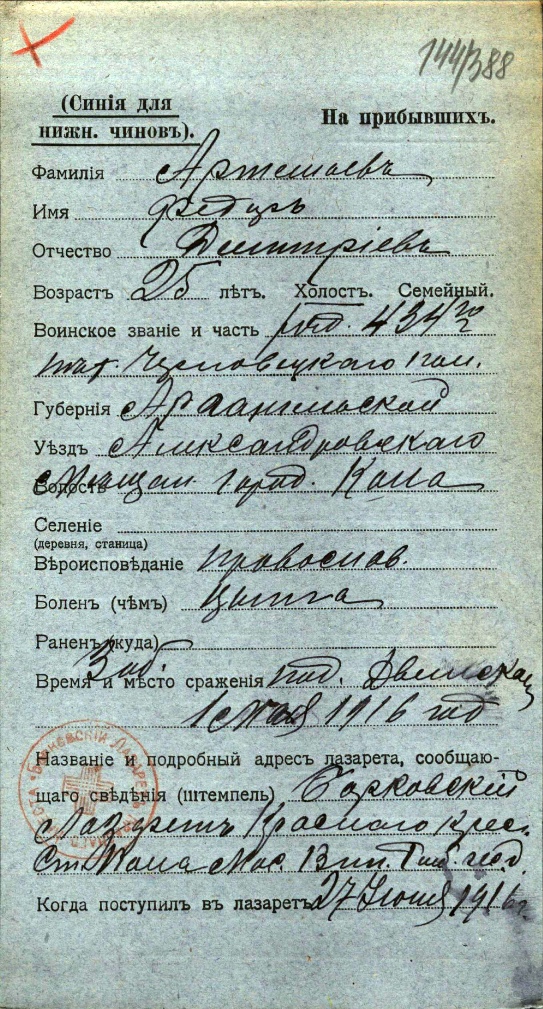 144388
(Синія для
нижн. чиновъ).
На прибывшихъ.
Фамилія Артемьевъ
Имя Федоръ
Отчество Дмитріевъ
Возрастъ 25 лѣтъ. Холостъ. Семейный.
Воинское званіе и часть ряд. 434го
пѣх. Череповецкаго пол.
Губернія Архангельской
Уѣздъ Александровскаго
Волость Мѣщан. город. Кола
Селеніе
(деревня, станица)
Вѣроисповѣданіе православ.
Боленъ (чѣмъ) Цынга
Раненъ (куда)
Время и мѣсто сраженія Заб. под. Двинском
1 Мая 1916 год
Названіе и подробный адресъ лазарета, сообщаю-
щаго свѣдѣнія (штемпель) Борковскій
Лазаретъ Краснаго Крес.
Ст. Мос. Вин. Рыб. ж. д.
Когда поступилъ въ лазаретъ 27 Іюня 1916 г.